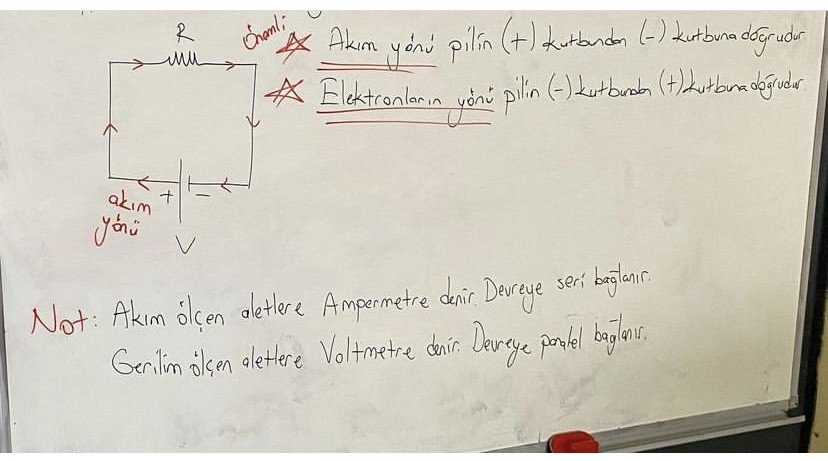 R
Önemli
Akım yönü pilin (+) kutbundan (-) kutbuna doğrudur
Elektronların yönü pilin (-) kutbundan (+) kutbuna doğrudur
+ -
akım
yönü
V
Not: Akım ölçen aletlere Ampermetre denir. Devreye seri bağlanır.
Gerilim ölçen aletlere Voltmetre denir. Devreye paralel bağlanır.